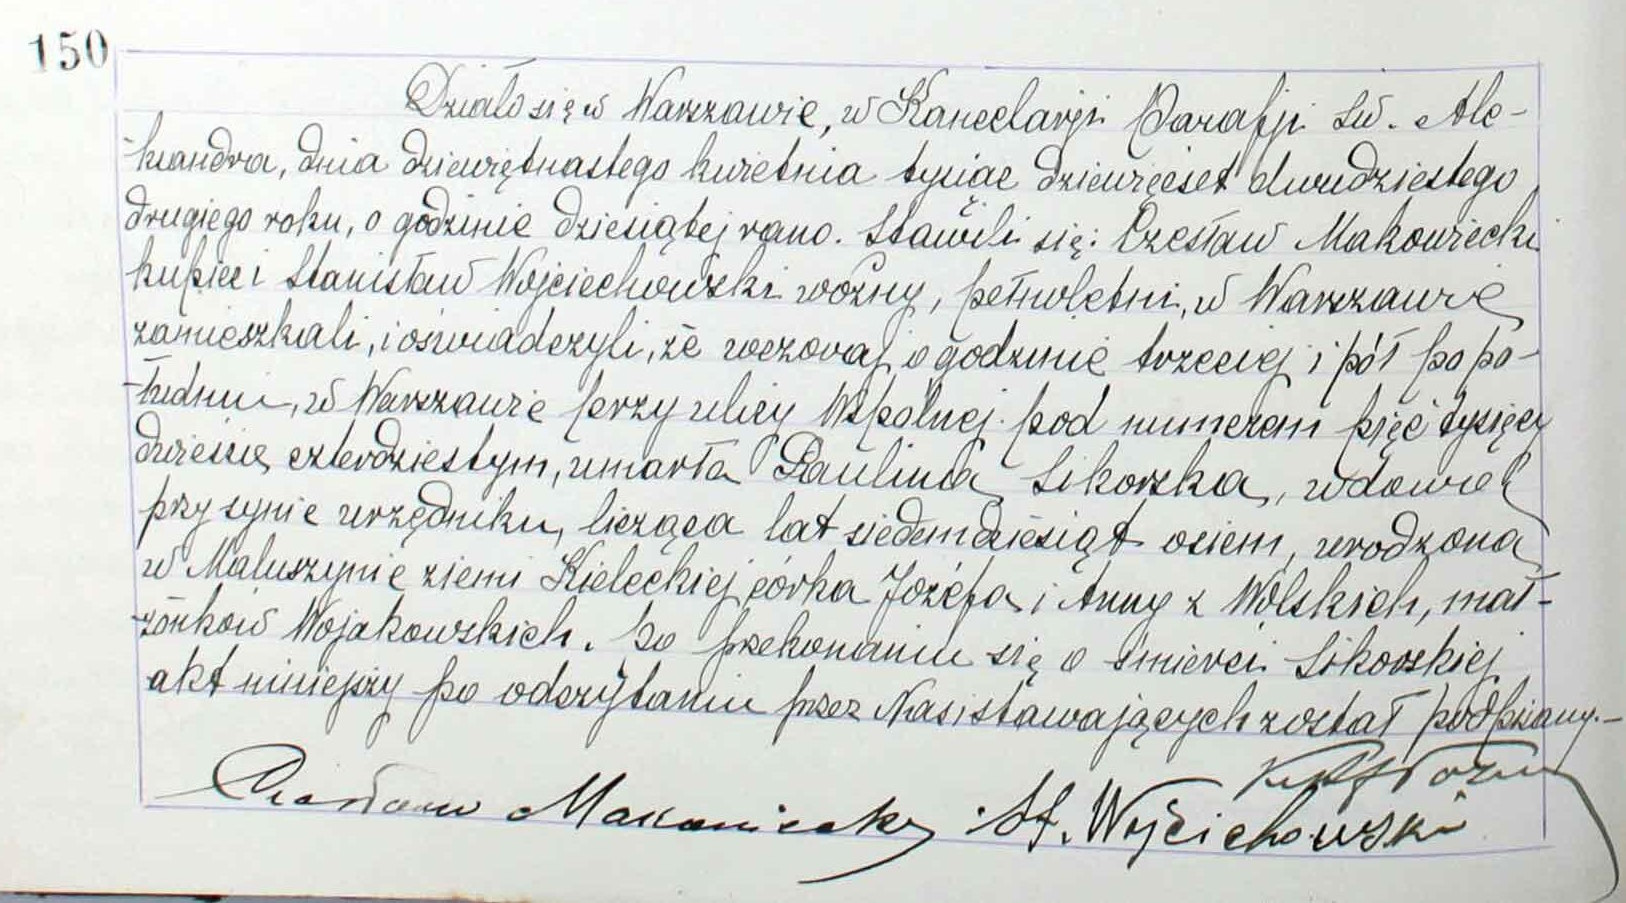 150
Działo się w Warszawie, w Kancelarji Parafji św. Ale-
-ksandra, dnia dziewiętnastego kwietnia tysiąc dziewięćset dwudziestego
drugiego roku, o godzinie dziesiątej rano. Stawili się: Czesław Makowiecki
kupiec i Stanisław Wojciechowski woźny, pełnoletni, w Warszawie
zamieszkali, i oświadczyli, że wczoraj o godzinie trzeciej i pół po po-
-łudniu, w Warszawie przy ulicy Wspólnej pod numerem pięć tysięcy
dwieście czterdziestym, umarła Paulina Sikorska, wdowa
przy synie urzędniku, licząca lat siedemdziesiąt osiem, urodzona
w Maluszynie ziemi Kieleckiej córka Józefa i Anny z Wolskich, mał-
-żonków Wojakowskich. Po przekonaniu się o śmierci Sikorskiej
akt niniejszy po odczytaniu przez Nas i stawających został podpisany.-
Czesław Makowiecki St. Wojciechowski